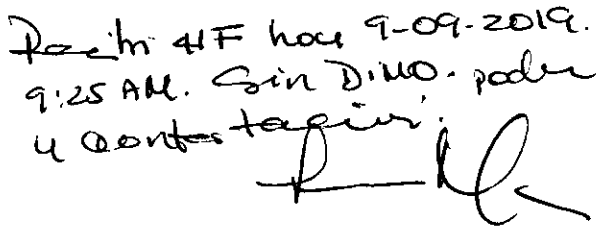 Recibi 4F hoy 9-09-2019.
9:25 AM. Sin DIMO. poder
y contestación.